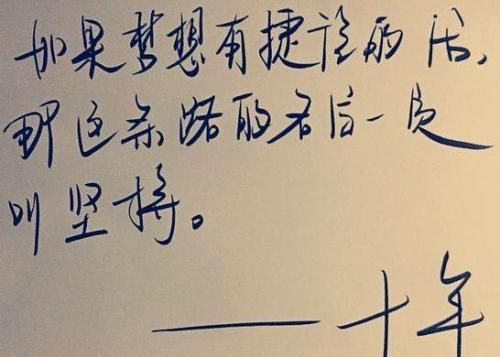 如果梦想有捷径的话，
那这条路的名字一定
叫坚持。
——十年